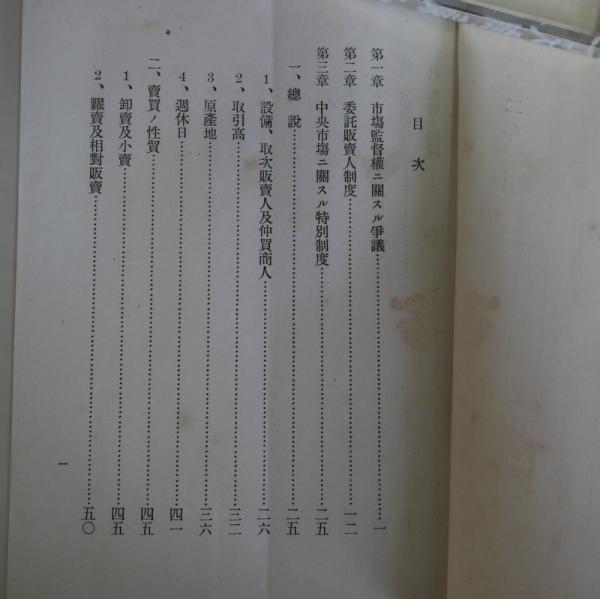 目次
第一章 市場監督權ニ關スル爭議……一
第二章 委託販賣人制度……一二
第三章 中央市場ニ關スル特別制度……二五
一、總說……二五
1、設備、取次販賣人及仲買商人……二六
2、取引高……三二
3、原產地……三六
4、週休日……四一
二、賣買ノ性質……四五
1、卸賣及小賣……四五
2、糶賣及相對販賣……五〇
一